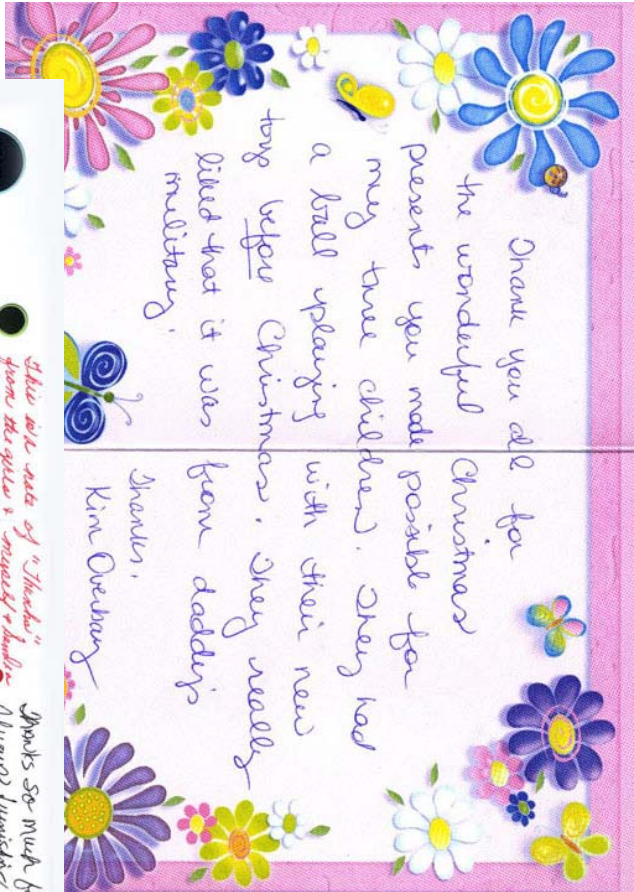 Thank you all for
the wonderful Christmas
presents you made possible for
my three children. They had
a ball playing with their new
toys before Christmas. They really
liked that it was from daddy's
military.
Thanks,
Kim Overbay
This is a note of "Thanks"
from the girls & myself &
Thanks so much f